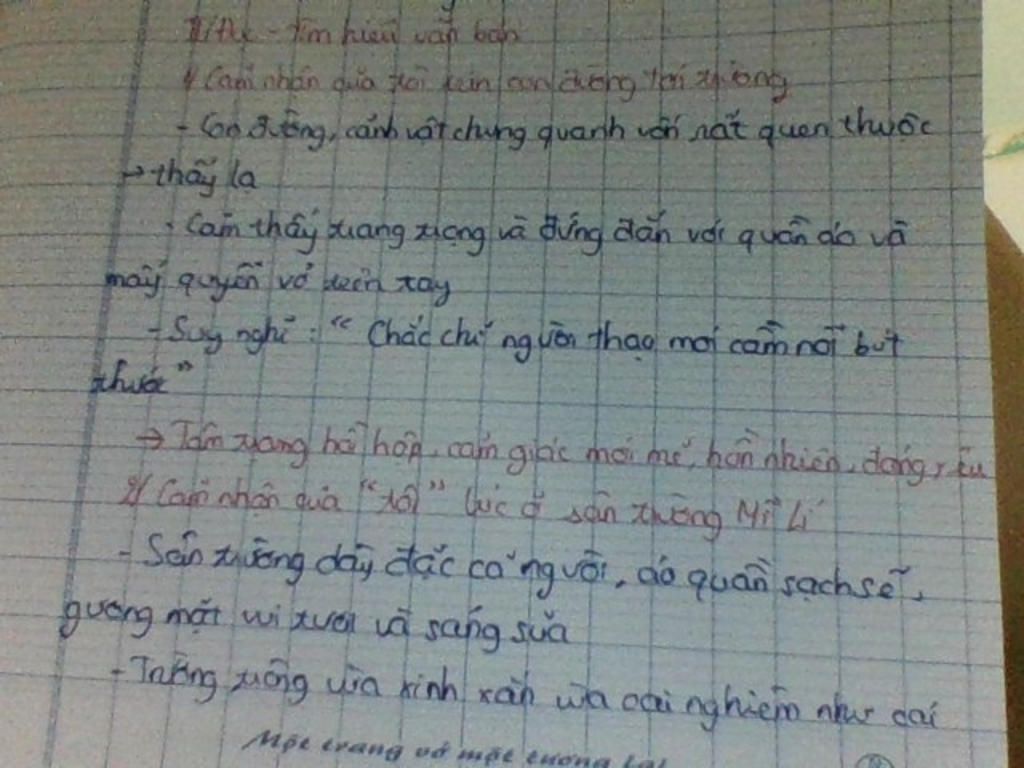 II/ĐH - Tìm hiểu văn bản
1/ Cảm nhận của tôi trên con đường tới trường
- Con đường, cảnh vật chung quanh vốn rất quen thuộc
→ thấy lạ
- Cảm thấy trang trọng và đứng đắn với quần áo và
mấy quyển vở trên tay
- Suy nghĩ : " Chắc chỉ người thạo mới cầm nổi bút
thước"
→ Tâm trạng hồi hộp, cảm giác mới mẻ, hồn nhiên, đáng yêu
2/ Cảm nhận của "tôi" lúc ở sân trường Mĩ Lí
- Sân trường dày đặc cả người, áo quần sạch sẽ,
gương mặt vui tươi và sáng sủa
- Trường trông vừa xinh xắn vừa oai nghiêm như cái
Một trang vở một tương lai